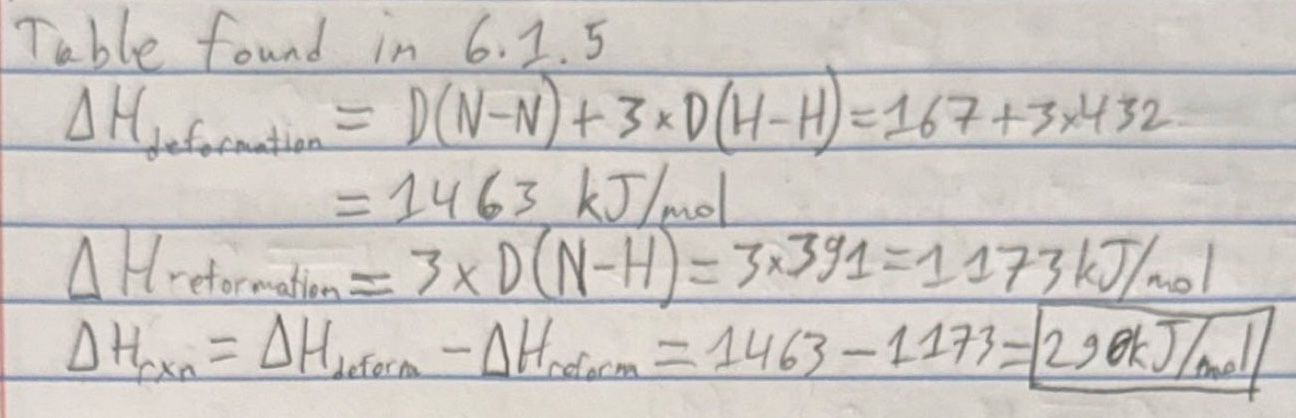 Table found in 6.1.5
ΔH deformation = D(N-N) + 3 × D(H-H) = 167 + 3×432
= 1463 kJ/mol
ΔH reformation = 3 × D(N-H) = 3×391 = 1173 kJ/mol
ΔH rxn = ΔH deform - ΔH reform = 1463 - 1173 = 290kJ/mol